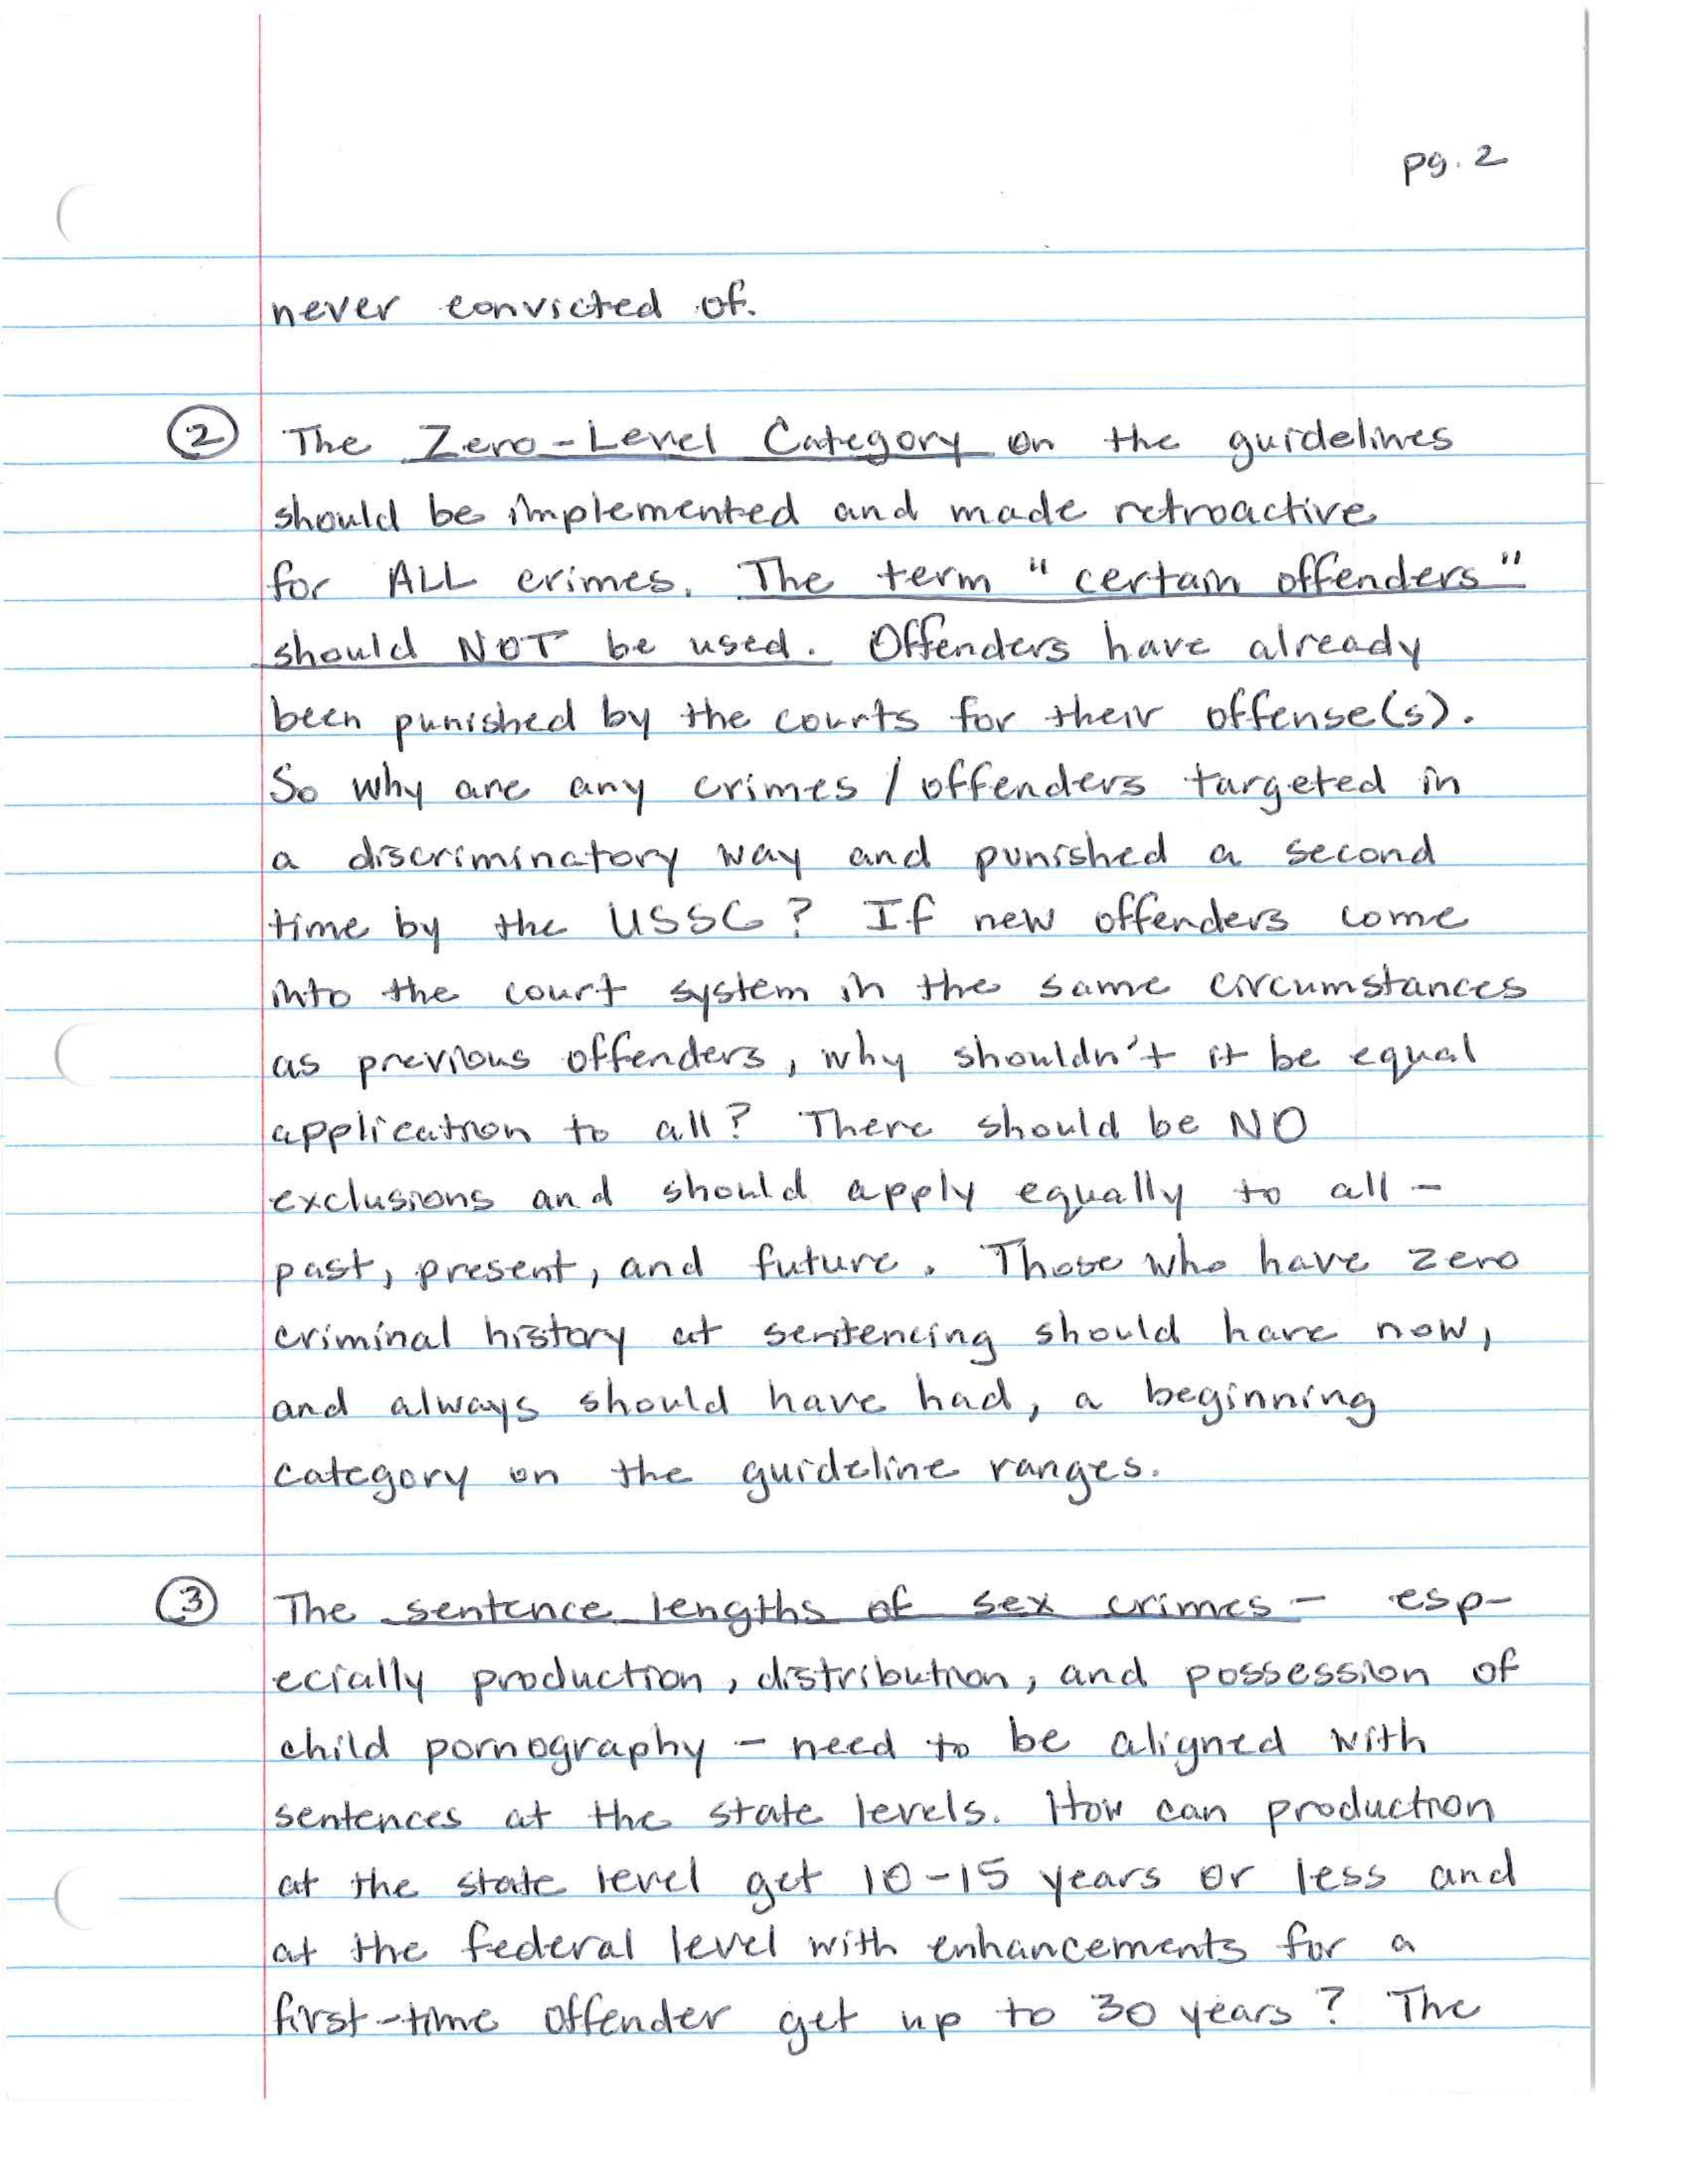 pg. 2
never convicted of.
② The Zero-Level Category on the guidelines
should be implemented and made retroactive
for ALL crimes. The term "certain offenders"
should NOT be used. Offenders have already
been punished by the courts for their offense(s).
So why are any crimes / offenders targeted in
a discriminatory way and punished a second
time by the USSC? If new offenders come
into the court system in the same circumstances
as previous offenders, why shouldn't it be equal
application to all? There should be NO
exclusions and should apply equally to all -
past, present, and future. Those who have zero
criminal history at sentencing should have now,
and always should have had, a beginning
category on the guideline ranges.
③ The sentence lengths of sex crimes - esp-
ecially production, distribution, and possession of
child pornography - need to be aligned with
sentences at the state levels. How can production
at the state level get 10-15 years or less and
at the federal level with enhancements for a
first-time offender get up to 30 years? The